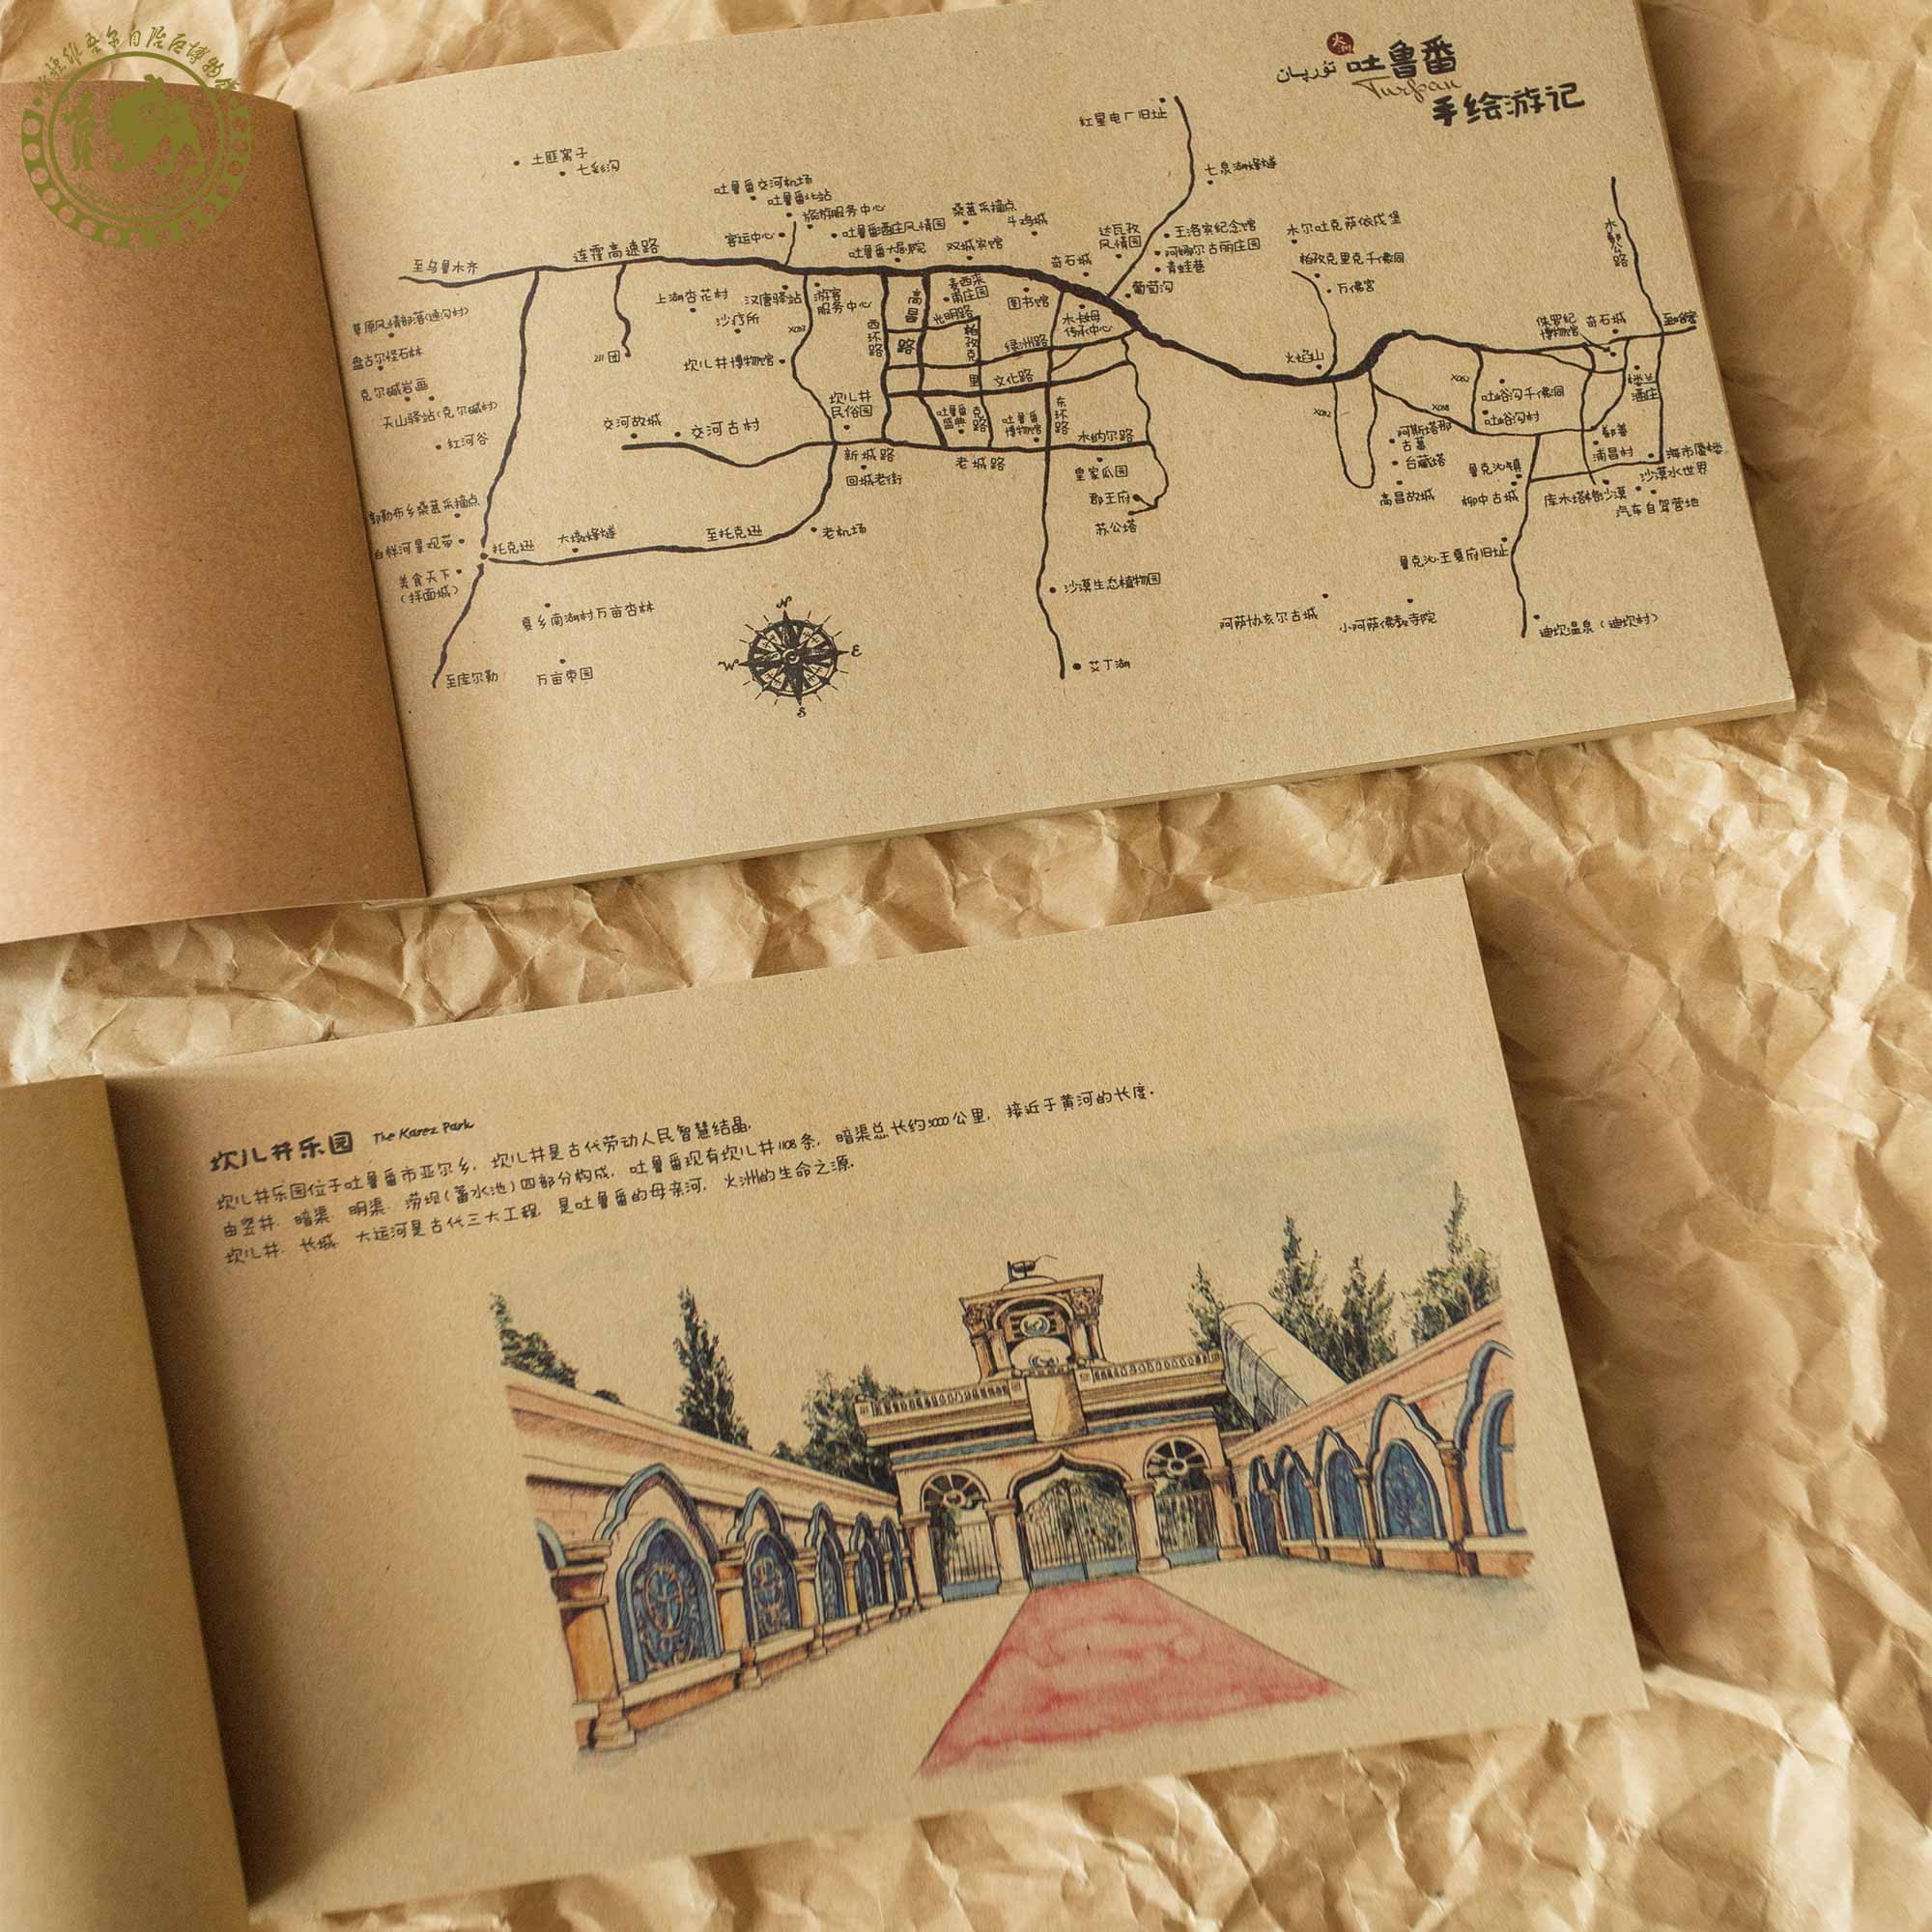 新疆维吾尔自治区博物馆
火洲
تۇرپان
吐鲁番
Turpan
手绘游记
红星电厂旧址
土匪窝子
七彩沟
七泉湖烽燧
吐鲁番交河机场
吐鲁番北站
旅游服务中心
桑葚采摘点
斗鸡城
客运中心
吐鲁番酒庄风情园
吐鲁番大剧院
双城宾馆
达瓦孜
风情园
王洛宾纪念馆
阿娜尔古丽庄园
青蛙巷
木尔吐克萨依戍堡
柏孜克里克千佛洞
万佛宫
连霍高速路
至乌鲁木齐
奇石城
葡萄沟
上湖杏花村
汉唐驿站
游客
服务中心
沙疗所
西环路
高昌路
麦西来
甫庄园
光明路
柏孜克里克路
图书馆
木卡姆
传承中心
绿洲路
文化路
火焰山
侏罗纪
博物馆
奇石城
至哈密
草原风情部落(通沟村)
盘古尔怪石林
克尔碱岩画
天山驿站(克尔碱村)
红河谷
211团
坎儿井博物馆
坎儿井
民俗园
交河故城
交河古村
吐鲁番
盛典
吐鲁番
博物馆
东环路
木纳尔路
新城路
老城路
回城老街
皇家瓜园
郡王府
苏公塔
楼兰
酒庄
吐峪沟千佛洞
吐峪沟村
阿斯塔那
古墓
台藏塔
高昌故城
鄯善
蒲昌村
海市蜃楼
沙漠水世界
鲁克沁镇
柳中古城
库木塔格沙漠
汽车自驾营地
郭勒布乡桑葚采摘点
白杨河景观带
美食天下
(拌面城)
托克逊
大墩烽燧
至托克逊
老机场
鲁克沁王夏府旧址
沙漠生态植物园
夏乡南湖村万亩杏林
阿萨协亥尔古城
小阿萨佛教寺院
迪坎温泉(迪坎村)
艾丁湖
至库尔勒
万亩枣园
N
W
E
S
坎儿井乐园 The Karez Park
坎儿井乐园位于吐鲁番市亚尔乡，坎儿井是古代劳动人民智慧结晶.
由竖井、暗渠、明渠、涝坝(蓄水池)四部分构成，吐鲁番现有坎儿井1108条，暗渠总长约5000公里，接近于黄河的长度.
坎儿井、长城、大运河是古代三大工程，是吐鲁番的母亲河，火洲的生命之源.